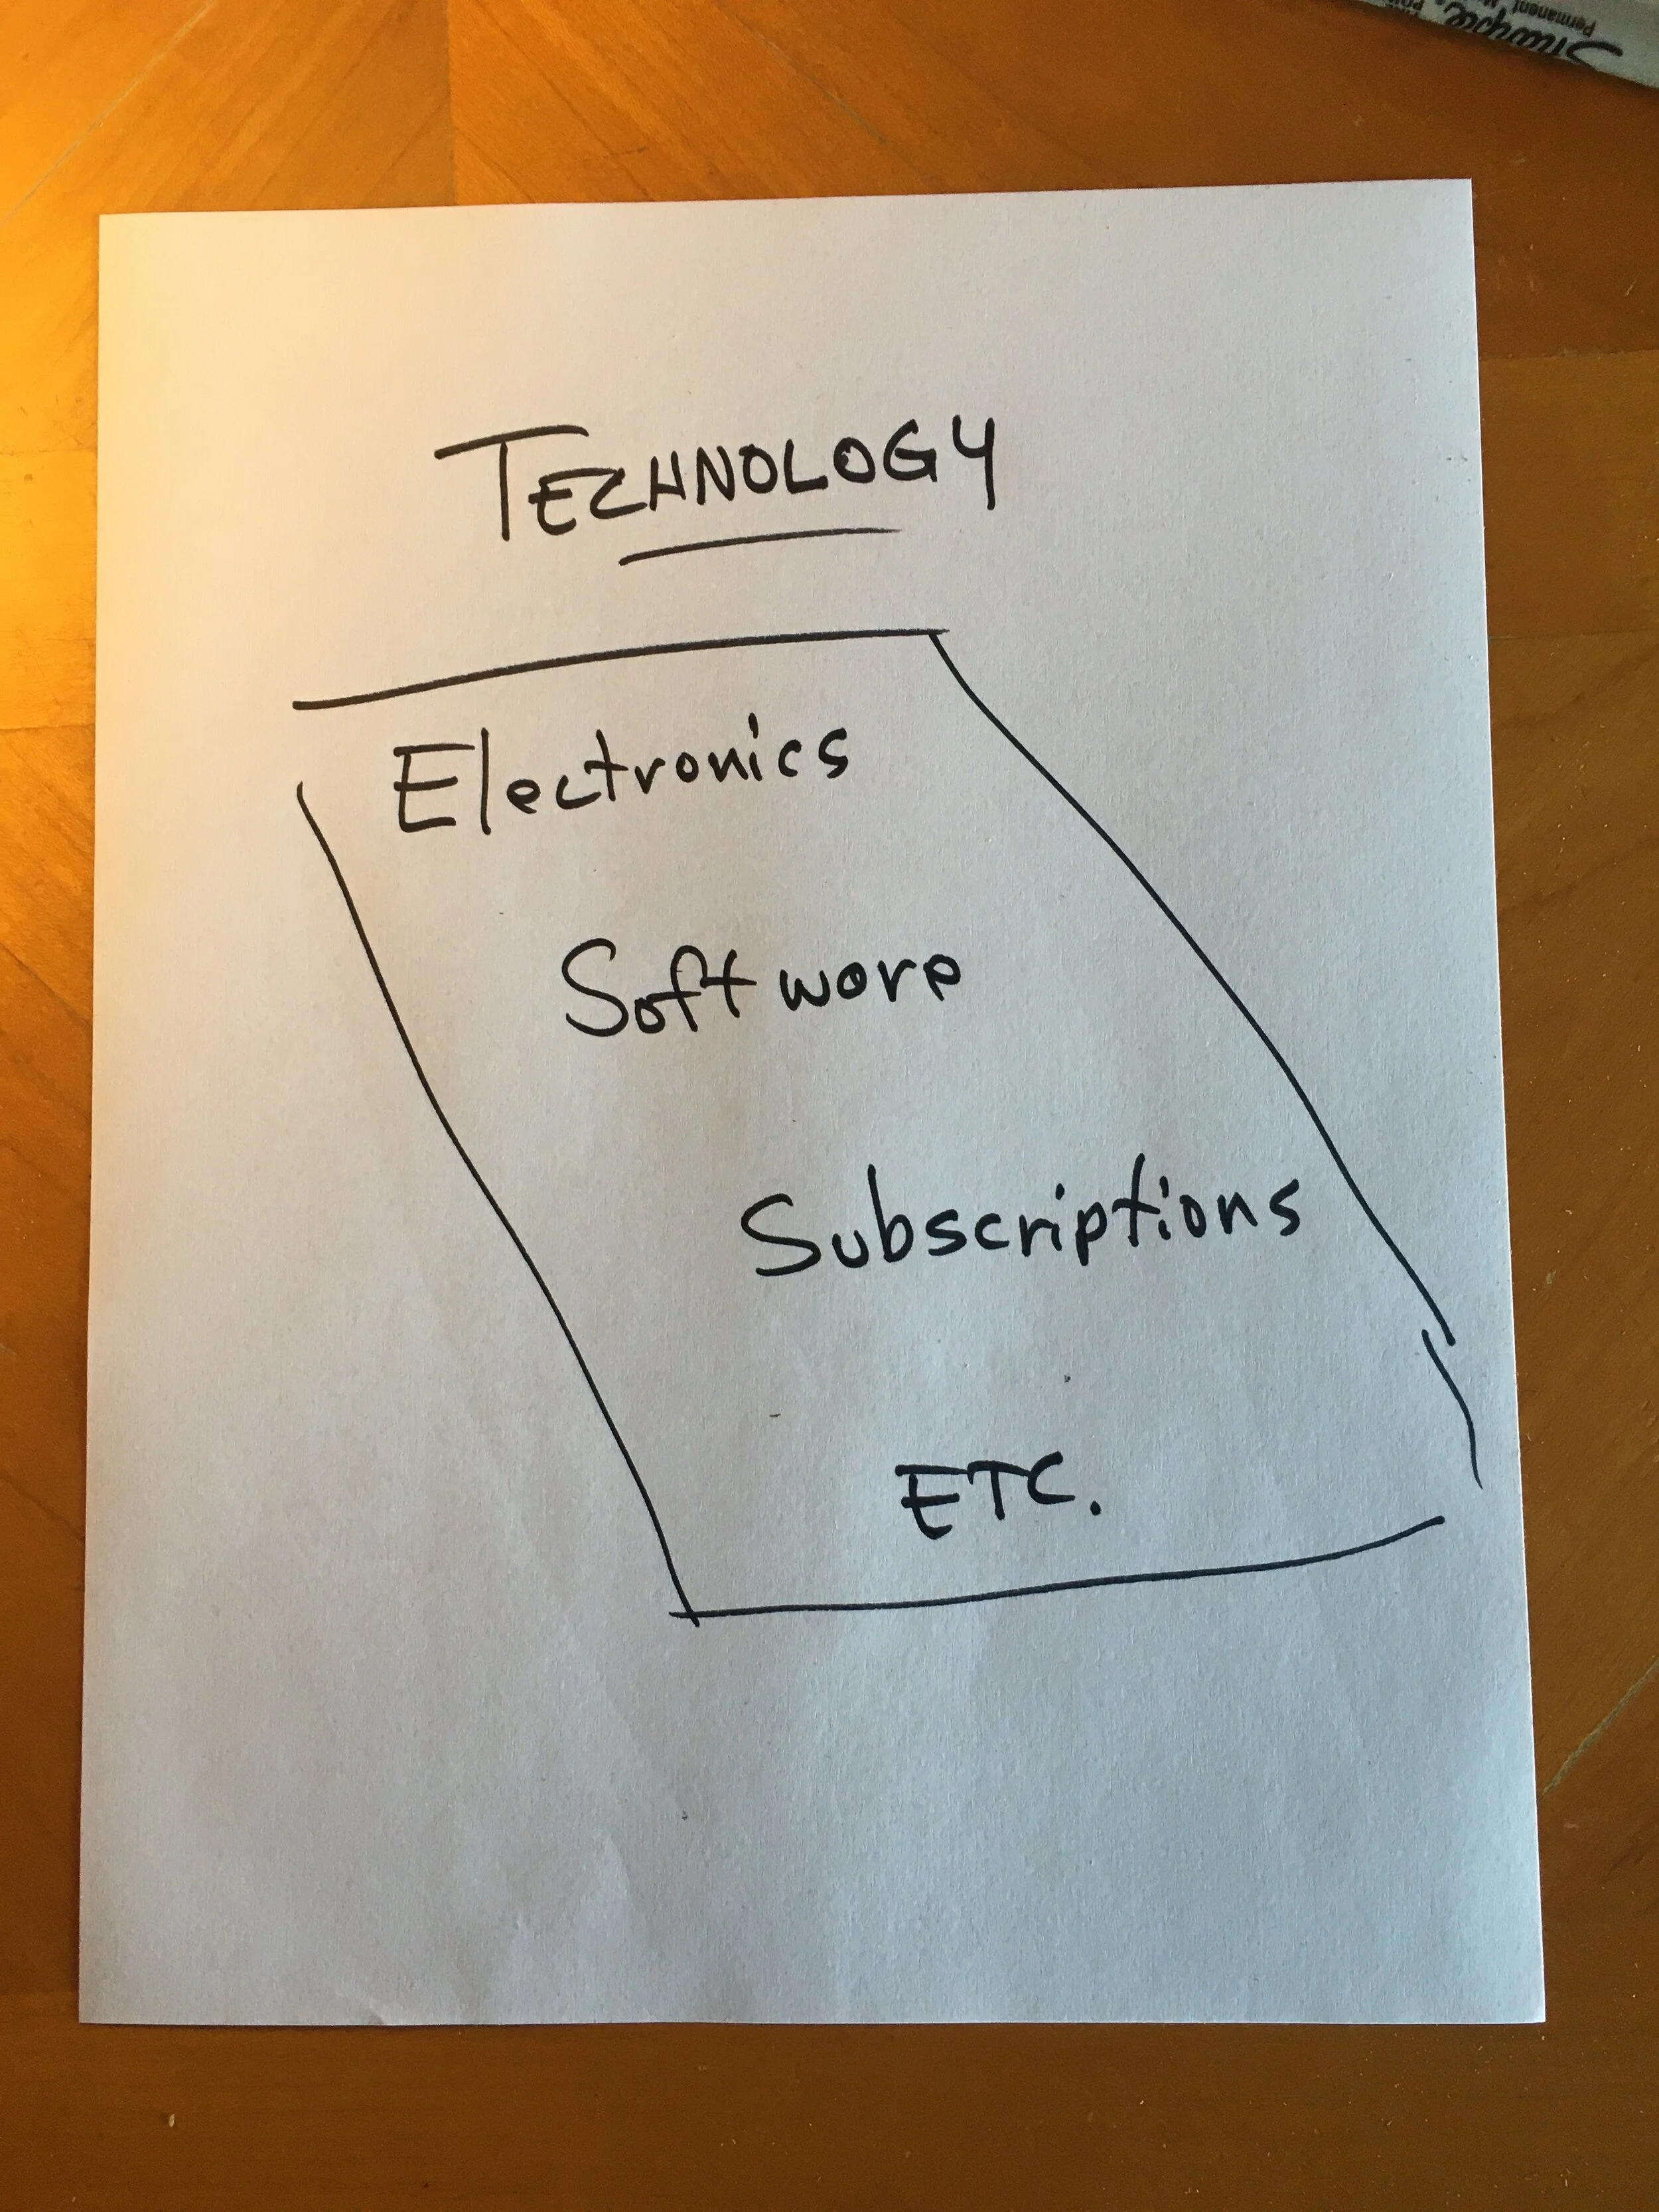 Sharpie
Permanent
TECHNOLOGY
Electronics
Software
Subscriptions
ETC.